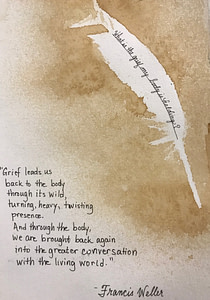 What is the grief my body is holding?
"Grief leads us
back to the body
through its wild,
turning, heavy, twisting
presence.
And through the body,
we are brought back again
into the greater conversation
with the living world."
- Francis Weller